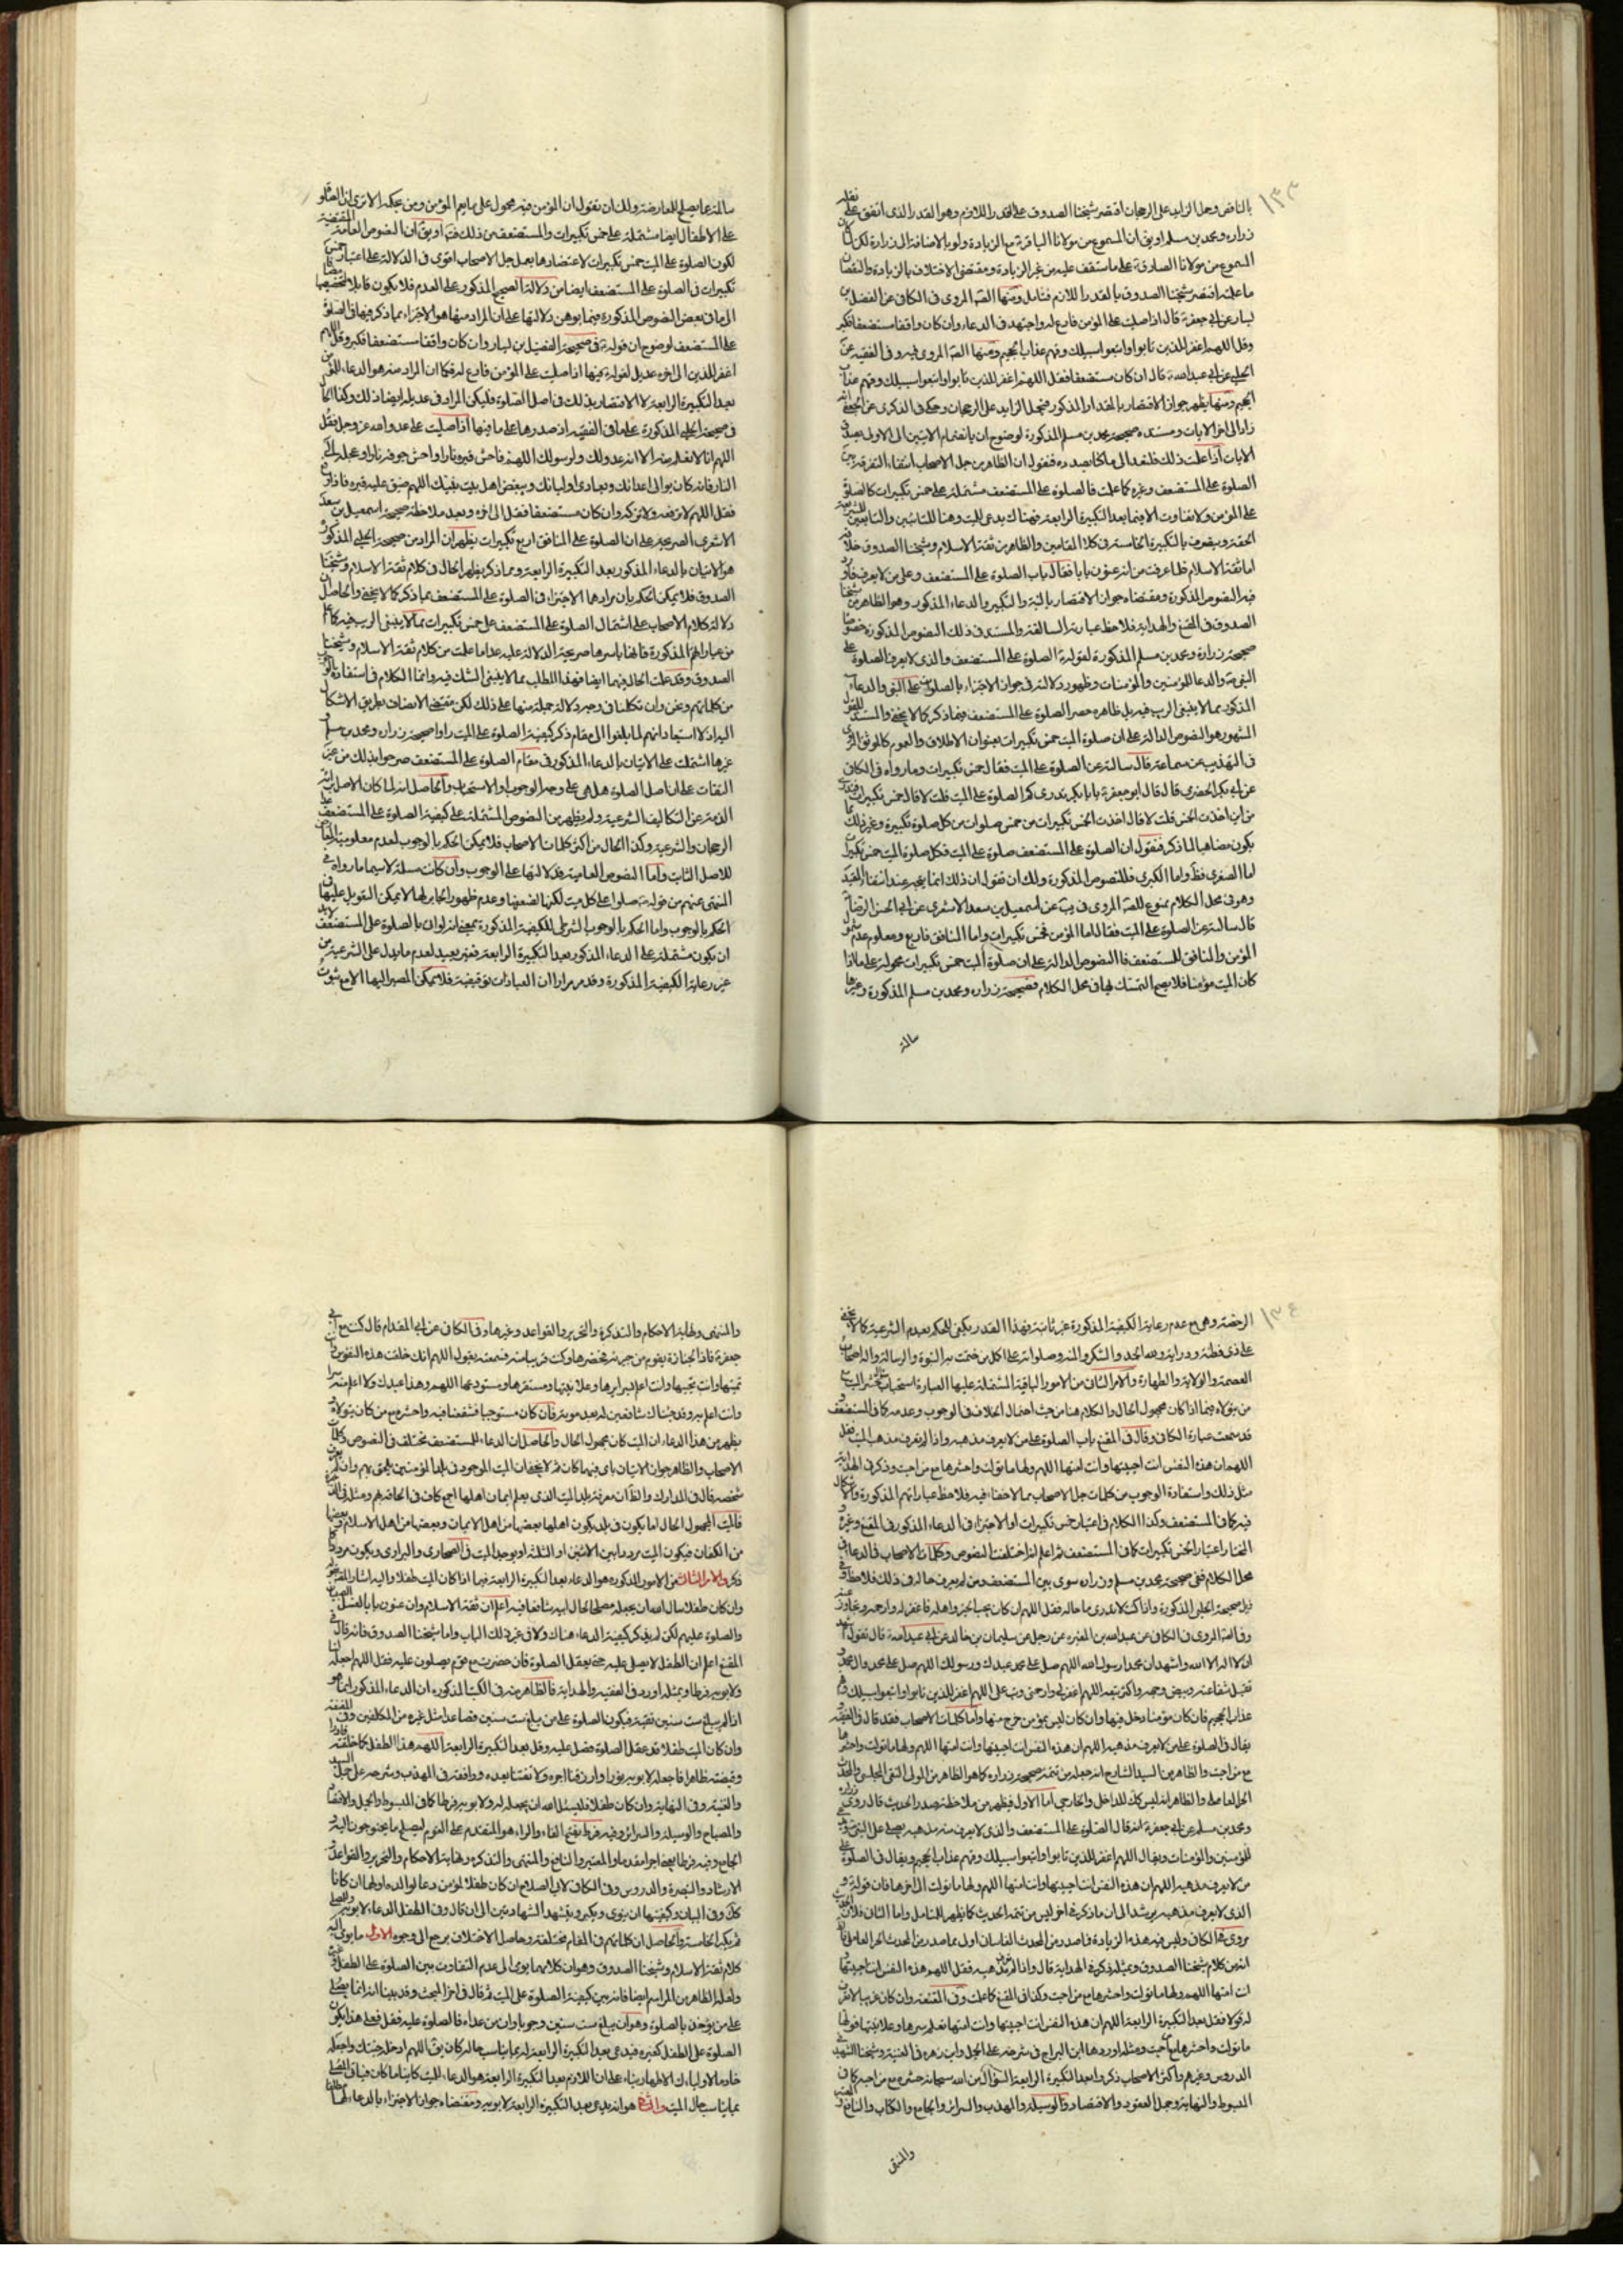 ١٣٣
بالناقص وحمل الزايد على الرجحان اقتصر شيخنا الصدوق على القدر اللازم وهو القدر الذى اتفق على نقله
زراره ومحمد بن مسلم او يق ان المسموع من مولانا الباقرؑ مع الزيادة ولو بالاضافة الى زرارة لكن
المسموع من مولانا الصادقؑ على ما ستقف عليه من غير الزيادة ومقتضى الاختلاف بالزيادة والنقصان
ما عليه اقتصر شيخنا الصدوق بالقدر اللازم فتامل ومنها الصه المروى فى الكافى عن الفضيل بن
يسار عن ابى جعفرؑ قال اذا صليت على المؤمن فادع له واجتهد فى الدعاء وان كان واقفا مستضعفا فكبر
وقل اللهم اغفر للذين تابوا واتبعوا سبيلك وقهم عذاب الجحيم ومنها الصه المروى فيه وفى الفقيه عن
الحلبى عن ابى عبد اللهؑ قال ان كان مستضعفا فقل اللهم اغفر للذين تابوا واتبعوا سبيلك وقهم عذاب
الجحيم ومنها يظهر جواز الاقتصار بالمقدار المذكور فيحمل الزايد على الرجحان وحكى فى الذكرى عن الجعفى انه
زاد الى اخر الايات ومستنده صحيحة محمد بن مسلم المذكورة لوضوح ان بانضمام الايتين الى الاولى
الايات اذا علمت ذلك فلنعد الى ما كنا بصدده فنقول ان الظاهر من جل الاصحاب انتفاء التفرقة بين
الصلوة على المستضعف وغيره كما علمت فالصلوة على المستضعف مشتملة على خمس تكبيرات كالصلوة
على المؤمن ولا تفاوت الا فيما بعد التكبيرة الرابعة فهناك يدعى للميت وهنا للتائبين والتابعين
الحقه وينصرف بالتكبيرة الخامسة فى كلا المقامين والظاهر من ثقة الاسلام وشيخنا الصدوق خلافه
اما ثقة الاسلام فلما عرفت من انه عنون بابا فقال باب الصلوة على المستضعف وعلى من لا يعرف فاورد
فيه النصوص المذكورة ومقتضاه جواز الاقتصار بالنية والتكبير والدعاء المذكور وهو الظاهر من شيخنا
الصدوق فى المقنع والهداية فلاحظ عبارته السالفة والمستند فى ذلك النصوص المذكورة خصوصا
صحيحة زرارة ومحمد بن مسلم المذكورة لقولهؑ الصلوة على المستضعف والذى لا يعرف الصلوة على
النبىؐ والدعا للمؤمنين والمؤمنات وظهور دلالته فى جواز الاجتزاء بالصلوة على النبى والدعاء
المذكور مما لا ينبغى الريب فيه بل ظاهره حصر الصلوة على المستضعف فيما ذكر كما لا يخفى والمستند
المشهور هو النصوص الدالة على ان صلوة الميت خمس تكبيرات بعنوان الاطلاق والعموم كالموثق المروى
فى التهذيب عن سماعة قال سالته عن الصلوة على الميت فقال خمس تكبيرات وما رواه فى الكافى
عن ابى بكر الحضرمى قال قال ابو جعفرؑ يا با بكر تدرى كم الصلوة على الميت قلت لا قال خمس تكبيرات
من اين اخذت الخمس قلت لا قال اخذت الخمس تكبيرات من خمس صلوات من كل صلوة تكبيرة وغير ذلك
يكون مضاهيا لما ذكر فنقول ان الصلوة على المستضعف صلوة على الميت فكل صلوة الميت خمس تكبيرات
اما الصغرى فظ واما الكبرى فللنصوص المذكورة ولك ان تقول ان ذلك انما يتجه عند انتفاء المقيد
وهو فى محل الكلام ممنوع للصه المروى فى يب عن اسمعيل بن سعد الاشعرى عن ابى الحسن الرضاؑ
قال سالته عن الصلوة على الميت فقال اما المؤمن فخمس تكبيرات واما المنافق فاربع ومعلوم عدم
المؤمن والمنافق للمستضعف فالنصوص الدالة على ان صلوة الميت خمس تكبيرات محمولة على ما اذا
كان الميت مؤمنا فلا يصح التمسك بها فى محل الكلام فصحيحة زراره ومحمد بن مسلم المذكورة وغيرها
سالمة
سالمة عما يصلح للمعارضة ولك ان تقول ان المؤمن فيه محمول على ما يعم المؤمن ومن بحكمه الا ترى ان الصلوة
على الاطفال ايضا مشتملة على خمس تكبيرات والمستضعف من ذلك فت او يق ان النصوص العامة المقتضية
لكون الصلوة على الميت خمس تكبيرات لاعتضادها بعمل جل الاصحاب اقوى فى الدلالة على اعتبار خمس
تكبيرات فى الصلوة على المستضعف ايضا من دلالة الصحيح المذكور على العدم فلا يكون قابلا لتخصيصها
الى ما فى بعض النصوص المذكورة مما يوهن دلالتها على ان المراد منها هو الاجتزاء بما ذكر فيها فى الصلوة
على المستضعف لوضوح ان قولهؑ فى صحيحة الفضيل بن يسار وان كان واقفا مستضعفا فكبر وقل اللهم
اغفر للذين الى اخره عديل لقوله فيها اذا صليت على المؤمن فادع له فكما ان المراد منه هو الدعاء للمؤمن
بعد التكبيرة الرابعة لا الاقتصار بذلك فى اصل الصلوة فليكن المراد فى عديله ايضا ذلك وكذا الحال
فى صحيحة الحلبى المذكورة على ما فى الفقيه اذ صدرها على ما فيها اذا صليت على عدو الله عز وجل فقل
اللهم انا لا نعلم منه الا انه عدو لك ولرسولك اللهم فاحش قبره نارا واحش جوفه نارا وعجله الى
النار فانه كان يوالى اعدائك ويعادى اوليائك ويبغض اهل بيت نبيك اللهم ضيق عليه قبره فاذا رفع
فقل اللهم لا ترفعه ولا تزكه وان كان مستضعفا فقل الى اخره وبعد ملاحظة صحيحة اسمعيل بن سعد
الاشعرى الصريحة على ان الصلوة على المنافق اربع تكبيرات يظهر ان المراد من صحيحة الحلبى المذكور
هو الاتيان بالدعاء المذكور بعد التكبيرة الرابعة ومما ذكر يظهر الحال فى كلام ثقة الاسلام وشيخنا
الصدوق فلا يمكن الحكم بان مرادهما الاجتزاء فى الصلوة على المستضعف بما ذكر كما لا يخفى والحاصل ان
دلالة كلام الاصحاب على اشتمال الصلوة على المستضعف على خمس تكبيرات مما لا ينبغى الريب فيه
من عباراتهم المذكورة فانها باسرها صريحة الدلالة عليه عدا ما علمت من كلام ثقة الاسلام وشيخنا
الصدوق وقد علمت الحال فيهما ايضا فهذا المطلب مما لا ينبغى الشك فيه وانما الكلام فى استفادة الوجوب
من كلماتهم ونحن وان تكلفنا فى وجه دلالة جملة منها على ذلك لكن مقتضى الانصاف تطريق الاشكال
اليه اذ لا استبعاد انهم لما بلغوا الى مقام ذكر كيفية الصلوة على الميت راوا صحيحة زراره ومحمد بن مسلم و
غيرها اشتملت على الاتيان بالدعاء المذكور فى مقام الصلوة على المستضعف صرحوا بذلك من غير
التفات على ان اصل الصلوة هل هى على وجه الوجوب او الاستحباب والحاصل انه لما كان الاصل برائة
الذمة عن التكاليف الشرعية ولم يظهر من النصوص المشتملة على كيفية الصلوة على المستضعف
الرجحان والشرعية وكذا الحال من اكثر كلمات الاصحاب فلا يمكن الحكم بالوجوب لعدم معلومية
للاصل الثابت واما النصوص العامية فدلالتها على الوجوب وان كانت مسلمة لاسيما ما رواه فى
المنتهى عنهم من قولهؐ صلوا على كل ميت لكنها لضعفها وعدم ظهور الجابر لها لا يمكن التعويل عليها فى
الحكم بالوجوب واما الحكم بالوجوب الشرطى للكيفية المذكورة بمعنى انه لو اتى بالصلوة على المستضعف لا بد
ان يكون مشتملة على الدعاء المذكور بعد التكبيرة الرابعة فغير بعيد لعدم ما يدل على الشرعية من
غير رعاية الكيفية المذكورة وقد مر مرارا ان العبادات توقيفية فلا يمكن المصير اليها الا مع ثبوت
١٣٤
الرخصة وهى مع عدم رعاية الكيفية المذكورة غير ثابتة فهذا القدر يكفى للحكم بعدم الشرعية كما لا يخفى
على ذى فطنة ودراية ولله الحمد والشكر والمنة وصلواته على اكمل من ختمت به النبوة والرسالة واله اصحاب
العصمة والولاية والطهارة والامر الثانى من الامور الباقية المشتملة عليها العبارة استحباب
من يتولاه فيما اذا كان مجهول الحال والكلام هنا من حيث احتمال الخلاف فى الوجوب وعدمه كما فى المستضعف
قد سمعت عبارة الكافى وقال فى المقنع باب الصلوة على من لا يعرف مذهبه واذا لم تعرف مذهب الميت فقل
اللهم ان هذه النفس انت احييتها وانت امتها اللهم ولها ما تولت واحشرها مع من احبت وذكر فى الهداية
مثل ذلك واستفادة الوجوب من كلمات جل الاصحاب مما لا خفاء فيه فلاحظ عباراتهم المذكورة والاشكال
فيه كما فى المستضعف وكذا الكلام فى اعتبار خمس تكبيرات او الاجتزاء فى الدعاء المذكور فى المقنع وغيره
المختار اعتبار الخمس تكبيرات كما فى المستضعف ثم اعلم انه اختلفت النصوص وكلمات الاصحاب فى الدعا فى
محل الكلام ففى صحيحة محمد بن مسلم وزراره سوى بين المستضعف ومن لم يعرف حاله فى ذلك فلاحظ وفى
ذيل صحيحة الحلبى المذكورة واذا كنت لا تدرى ما حاله فقل اللهم ان كان يحب الخير واهله فاغفر له وارحمه وتجاوز عنه
وفى الصه المروى فى الكافى عن عبد الله بن المغيره عن رجل عن سليمان بن خالد عن ابى عبد اللهؑ قال تقول اشهد
ان لا اله الا الله واشهد ان محمدا رسول الله اللهم صل على محمد عبدك ورسولك اللهم صل على محمد وال محمد و
تقبل شفاعته وبيض وجهه واكثر تبعه اللهم اغفر لى وارحمنى وتب على اللهم اغفر للذين تابوا واتبعوا سبيلك وقهم
عذاب الجحيم فان كان مؤمنا دخل فيها وان كان ليس بمؤمن خرج منها واما كلمات الاصحاب فقد قال فى الفقيه و
يقال فى الصلوة على من لا يعرف مذهبه اللهم ان هذه النفس انت احييتها وانت امتها اللهم ولها ما تولت واحشرها
مع من احبت والظاهر من السيد الشارح انه جعله من تتمة صحيحة زراره كما هو الظاهر من المولى التقى المجلسى والمحدث
الحر العاملى والظاهر انه ليس كك للداخل والخارجى اما الاول فيظهر من ملاحظة صدر الحديث قال روى زراره
ومحمد بن مسلم عن ابى جعفرؑ انه قال الصلوة على المستضعف والذى لا يعرف منه مذهبه يصلى على النبىؐ ويدعى
للمؤمنين والمؤمنات ويقال اللهم اغفر للذين تابوا واتبعوا سبيلك وقهم عذاب الجحيم ويقال فى الصلوة على
من لا يعرف مذهبه اللهم ان هذه النفس انت احييتها وانت امتها اللهم ولها ما تولت الى اخرها فان قوله و
الذى لا يعرف مذهبه يرشد الى ان ما ذكره فى اخره ليس من تتمة الحديث كما يظهر للمتامل واما الثانى فلان
مروى فى الكافى وليس فيه هذه الزيادة فما صدر من المحدث القاسانى اولى مما صدر من المحدث الحر العاملى فى
انه من كلام شيخنا الصدوق وبمثله ذكر فى الهداية قال واذا لم تعرف مذهبه فقل اللهم هذه النفس انت احييتها و
انت امتها اللهم ولها ما تولت واحشرها مع من احبت وكذا فى المقنع كما علمت وفى المقنعة وان كان غريبا لا تعرف
له قولا فقل بعد التكبيرة الرابعة اللهم ان هذه النفس انت احييتها وانت امتها تعلم سرها وعلانيتها فولها
ما تولت واحشرها مع من احبت ومثله اوردها ابن البراج فى شرحه على الجمل وابن زهره فى الغنية وشيخنا الشهيد فى
الدروس وغيرهم واكثر الاصحاب ذكروا بعد التكبيرة الرابعة السؤال من الله سبحانه حشره مع من احبه كما فى
المبسوط والنهاية وجمل العقود والاقتصاد والوسيلة والمهذب والسرائر والجامع والكتاب والنافع
والمنتهى
والمنتهى ونهاية الاحكام والتذكرة والتحرير والقواعد وغيرها وفى الكافى عن ابى المقدام قال كنت مع ابى
جعفرؑ فاذا الجنازة بقوم من جيرته فحضرها وكنت قريبا منه فسمعته يقول اللهم انك خلقت هذه النفوس وانت
تميتها وانت تحييها وانت اعلم بسرايرها وعلانيتها ومستقرها ومستودعها اللهم وهذا عبدك ولا اعلم منه سوءا
وانت اعلم به وقد جئناك شافعين له بعد موته فان كان مستوجبا فشفعنا فيه واحشره مع من كان يتولاه
يظهر من هذا الدعاء ان الميت كان مجهول الحال والحاصل ان الدعاء للمستضعف مختلف فى النصوص وكلمات
الاصحاب والظاهر جواز الاتيان باى فيها كان ثم لا يخفى ان الميت الموجود فى بلد المؤمنين يلحق بهم وان لم يعرف
شخصه قال فى المدارك والظ ان معرفة بلد الميت الذى يعلم ايمان اهلها اجمع كاف فى الحاقه بهم ومثله فى
فالميت المجهول الحال اما يكون فى بلد يكون اهلها بعضها من اهل الايمان وبعضها من اهل الاسلام وبعضها
من الكفار فيكون الميت مرددا بين الاثنين او الثلثة او يوجد الميت فى الصحارى والبرارى ويكون مرددا كما
ذكر والامر الثالث من الامور المذكوره هو الدعاء بعد التكبيرة الرابعة فيما اذا كان الميت طفلا واليه اشار المصنف بقوله
وان كان طفلا سال الله ان يجعله مصلحا لحال ابيه شافعا فيه اعلم ان ثقة الاسلام وان عنون بابا لغسل الصبيان
والصلوة عليهم لكن لم يذكر كيفية الدعاء هناك ولا فى غير ذلك الباب واما شيخنا الصدوق فانه قال فى
المقنع اعلم ان الطفل لا يصلى عليه حتى يعقل الصلوة فان حضرت مع قوم يصلون عليه فقل اللهم اجعله لنا
ولابويه فرطا وبمثله اورد فى الفقيه والهداية فالظاهر منه فى الكتب المذكوره ان الدعاء المذكور انما هو
اذا لم يبلغ ست سنين تقية فيكون الصلوة على من بلغ ست سنين فصاعدا مثل غيره من المكلفين وفى المقنعة
وان كان الميت طفلا قد عقل الصلوة فصل عليه وقل بعد التكبيرة الرابعة اللهم هذا الطفل كما خلقته قادرا
وقبضته طاهرا فاجعله لابويه نورا وارزقنا اجره ولا تفتنا بعده ووافقه فى المهذب وشرحه على جمل السيد
والغنية وفى النهاية وان كان طفلا فليسئل الله ان يجعله له ولابويه فرطا كما فى المبسوط والجمل والاقتصاد
والمصباح والوسيلة والسرائر وفيه فرطا بفتح الفاء والراء هو المتقدم على القوم ليصلح ما يحتاجون اليه و
الجامع وفيه فرطا يعنى اجرا متقدما والمعتبر والنافع والمنتهى والتذكره ونهاية الاحكام والتحرير والقواعد و
الارشاد والتبصرة والدروس وفى الكافى لابى الصلاح ان كان طفلا لمؤمن دعا لوالديه اولهما ان كانا
كك وفى البيان وكيفيتها ان ينوى ويكبر ويتشهد الشهادتين الى ان قال وفى الطفل الدعاء لابويه
ثم يكبر الخامسة والحاصل ان كلماتهم فى المقام مختلفة وحاصل الاختلاف يرجع الى وجوه الاول ما يومى اليه
كلام ثقة الاسلام وشيخنا الصدوق وهو ان كلامهما يومى الى عدم التفاوت بين الصلوة على الطفل وغيره
ولعله الظاهر من المراسم ايضا فانه بين كيفية الصلوة على الميت ثم قال فى اخر المبحث وقد بينا انه انما يصلى
على من يؤخذ بالصلوة وهو ان يبلغ ست سنين وجوبا وان من عداه فالصلوة عليه فضل فعلى هذا يكون
الصلوة على الطفل كغيره فيدعى بعد التكبيرة الرابعة له بما يناسب حاله كان يق اللهم ادخله جنتك واجعله
خادما لاوليائك الاطهار بناء على ان اللازم بعد التكبيرة الرابعة هو الدعاء للميت كائنا ما كان
بما يناسب حال الميت والثانى هو انه يدعى بعد التكبيرة الرابعة لابويه ومقتضاه جواز الاجتزاء بالدعاء لهما